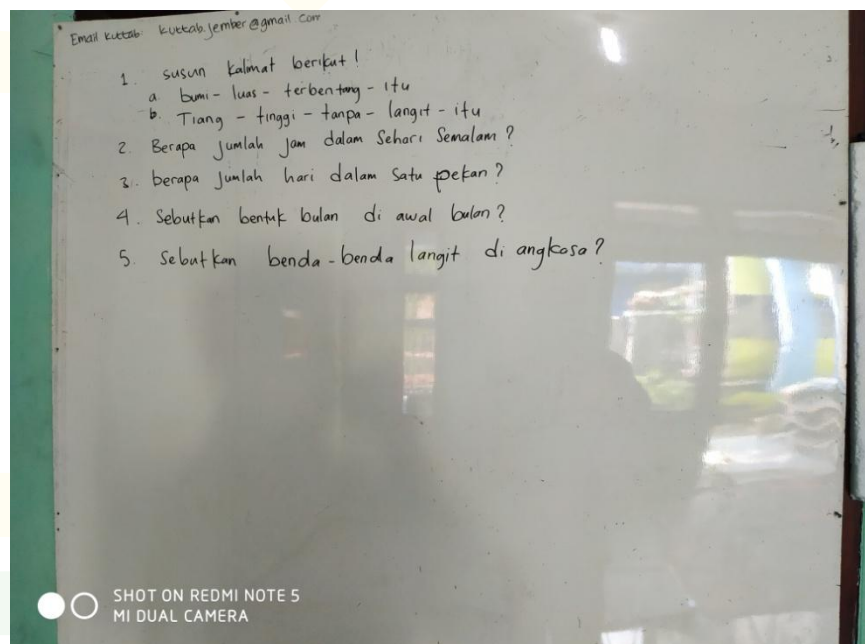 Email kuttab kuttab.jember@gmail.com
1. susun kalimat berikut!
a bumi - luas - terbentang - itu
b. Tiang - tinggi - tanpa - langit - itu
2. Berapa jumlah jam dalam Sehari Semalam?
3. berapa jumlah hari dalam satu pekan?
4. Sebutkan bentuk bulan di awal bulan?
5. Sebutkan benda-benda langit di angkasa?
SHOT ON REDMI NOTE 5
MI DUAL CAMERA